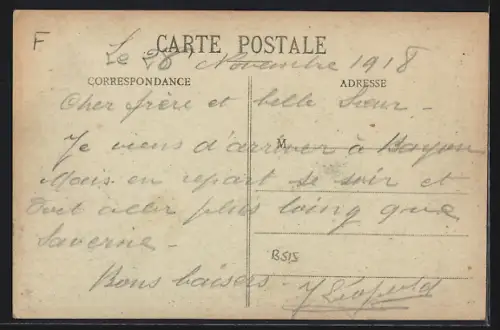 F
CARTE POSTALE
Le 26 Novembre 1918
CORRESPONDANCE
ADRESSE
Cher frère et belle Sœur -
M
Je viens d'arriver à Bayon
Mais en repart se soir et
Doit aler plus loing que
Saverne -
B515
Bons baisers -
Léopold